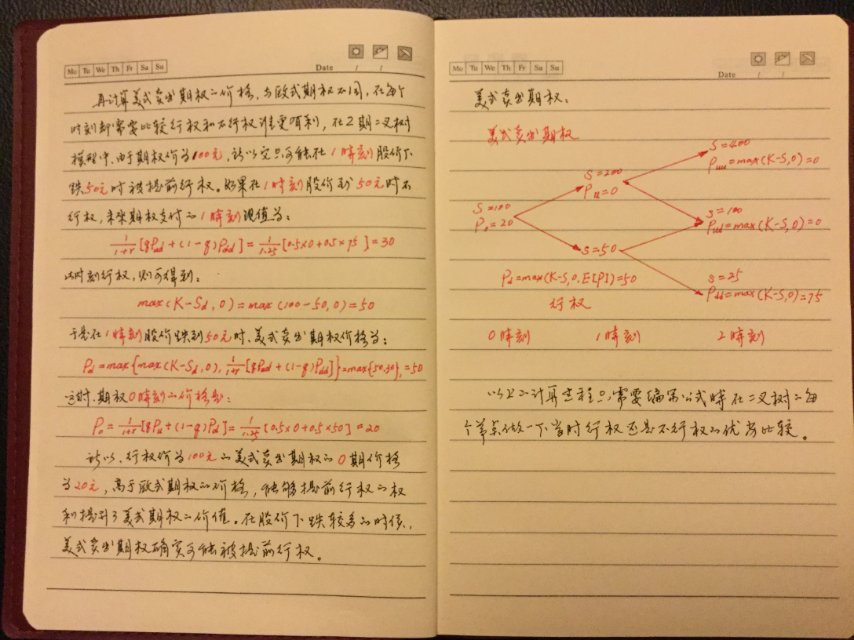 Mo Tu We Th Fr Sa Su
Date / /
再计算美式卖出期权的价格,与欧式期权不同,在每个
时刻都需要比较行权和不行权谁更有利,在2期二叉树
模型中,由于期权价为100元,所以它只可能在1时刻股价下
跌50元时被提前行权。如果在1时刻股价到50元时不
行权,未来期权支付的1时刻现值为:
1/(1+r) [qPud+(1-q)Pdd] = 1/1.25 [0.5×0+0.5×75] = 30
此时刻行权,则可得到:
max(K-Sd,0)=max(100-50,0)=50
于是在1时刻股价跌到50元时,美式卖出期权价格为:
Pd=max{max(K-Sd,0), 1/(1+r) [qPud+(1-q)Pdd]}=max{50,30}=50
这时,期权0时刻的价格为:
P0= 1/(1+r) [qPu+(1-q)Pd]= 1/1.25 [0.5×0+0.5×50]=20
所以,行权价为100元的美式卖出期权的0期价格
为20元,高于欧式期权的价格,能够提前行权的权
利提升了美式期权的价值。在股价下跌较多的时候,
美式卖出期权确实可能被提前行权。
Mo Tu We Th Fr Sa Su
Date / /
美式卖出期权:
美式卖出期权
S=400
Puu=max(K-S,0)=0
S=200
Pu=0
S=100
P0=20
S=100
Pud=max(K-S,0)=0
S=50
Pd=max(K-S,0,E[P])=50
行权
S=25
Pdd=max(K-S,0)=75
0时刻 1时刻 2时刻
以上的计算过程只需要编写公式时在二叉树的每
个节点做一下当时行权还是不行权的优劣比较。